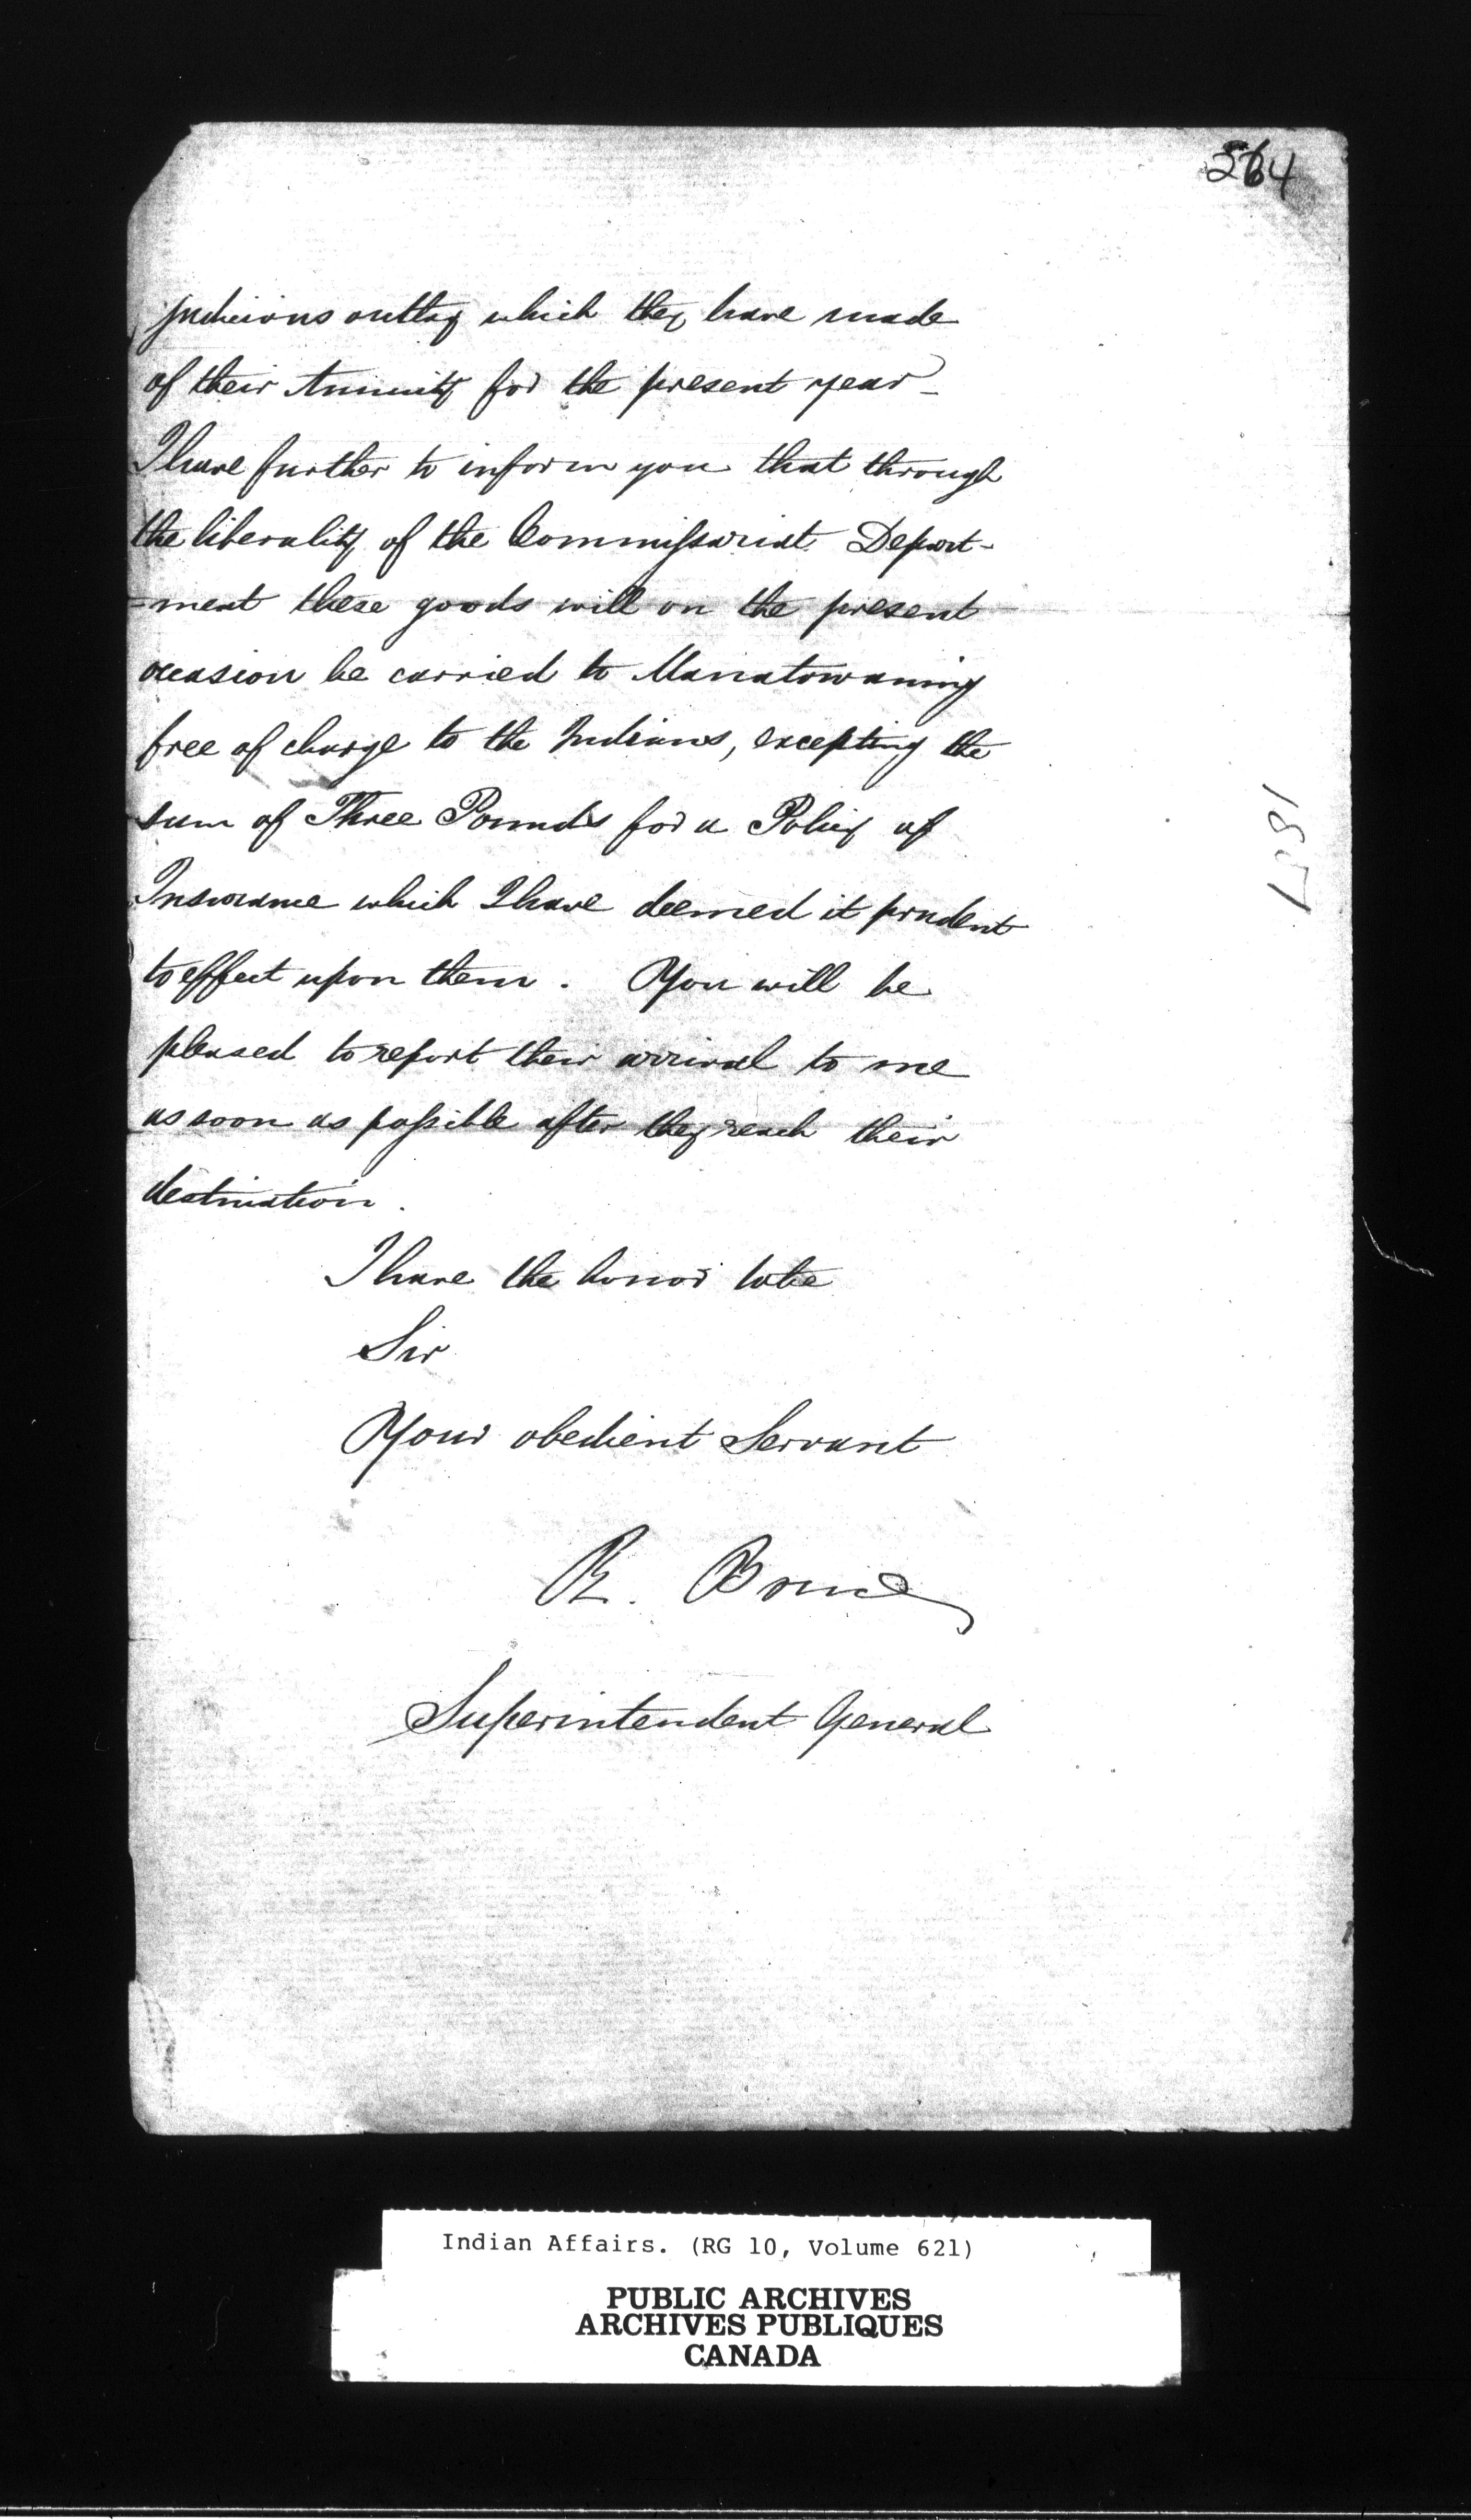 564
judicious outlay which they have made
of their Annuity for the present year _
I have further to inform you that through
the liberality of the Commissariat Depart-
=ment these goods will on the present
occasion be carried to Manatowaning
free of charge to the Indians, excepting the
sum of Three Pounds for a Policy of
Insurance which I have deemed it prudent
to effect upon them. You will be
pleased to report their arrival to me
as soon as possible after they reach their
destination.
I have the honor to be
Sir
Your obedient Servant
R. Bruce
Superintendent General
Indian Affairs. (RG 10, Volume 621)
PUBLIC ARCHIVES
ARCHIVES PUBLIQUES
CANADA